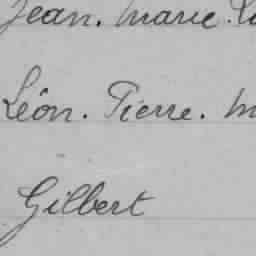 Jean. Marie.
Léon. Pierre.
Gilbert